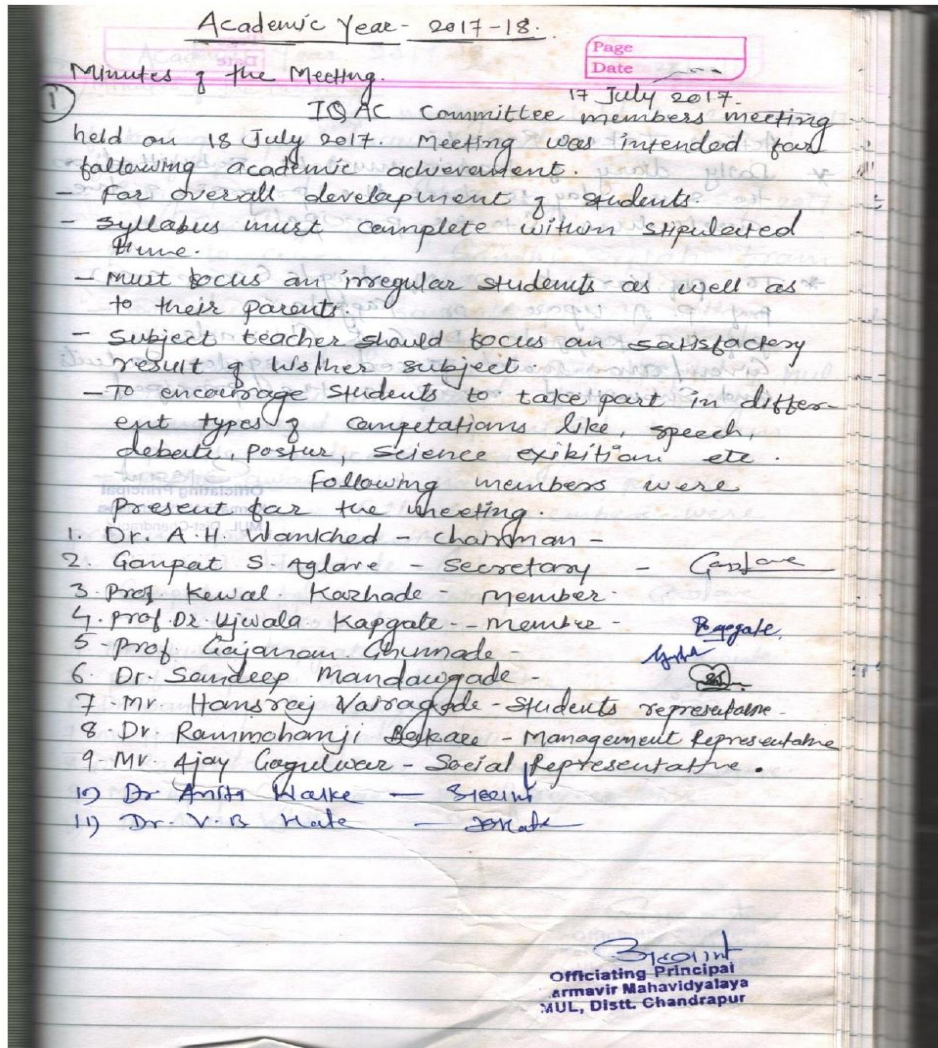 Academic Year - 2017-18.
Page
Date
Minutes of the Meeting.
17 July 2017.
1 IQAC Committee members meeting
held on 18 July 2017. Meeting was intended for
following academic achievement.
- For overall development of students.
- Syllabus must complete within stipulated
time.
- Must focus on irregular students as well as
to their parents.
- Subject teacher should focus on satisfactory
result of his/her subject
- To encourage students to take part in differ-
ent types of competations like, speech,
debate, Postur, Science exibition etc.
Following members were
present for the meeting.
1. Dr. A.H. Wankhed - chairman -
2. Ganpat S. Aglave - Secretary -
3. Prof Kewal Karhade - member.
4. Prof. Dr. Ujwala Kapgate - - member - Kapgate
5. Prof. Gajanan Ghumade -
6. Dr. Sandeep Mandawgade -
7. Mr. Hansraj Vairagade - Students representative -
8. Dr. Rammohanji - Management Representative
9. Mr. Ajay Gogulwar - Social Representative.
10) Dr Anita Walke -
11) Dr. V.B Hate -
Officiating Principal
armavir Mahavidyalaya
MUL, Distt. Chandrapur